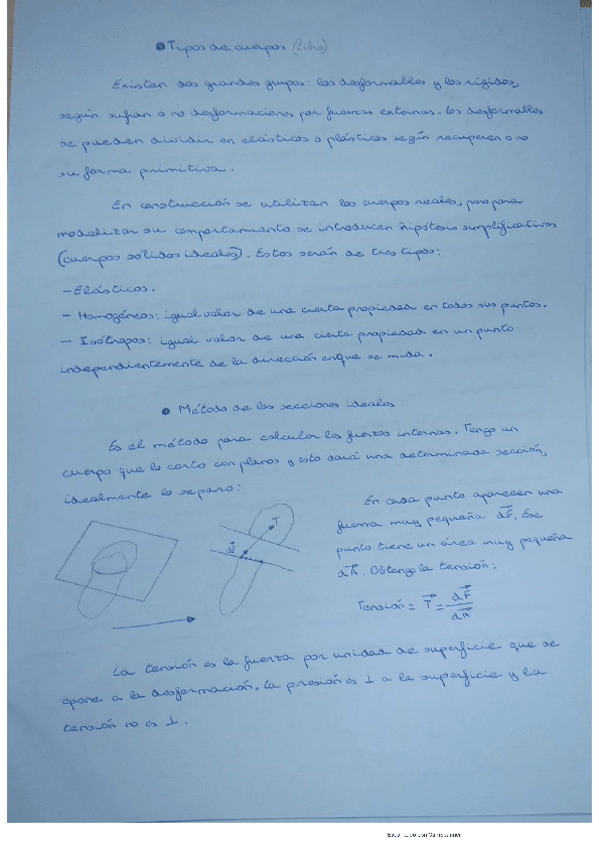 • Tipos de cuerpos (Libro)
Existen dos grandes grupos: los desformables y los rígidos,
según sufran o no desformaciones por fuerzas externas. Los desformables
se pueden dividir en elásticos o plásticos según recuperen o no
su forma primitiva.
En construcción se utilizan los cuerpos reales, pero para
modelizar su comportamiento se introducen hipótesis simplificativas
(cuerpos sólidos ideales). Estos serán de tres tipos:
- Elásticos.
- Homogéneos: igual valor de una cierta propiedad en todos sus puntos.
- Isótropos: igual valor de una cierta propiedad en un punto
independientemente de la dirección en que se mida.
• Método de las secciones ideales
Es el método para calcular las fuerzas internas. Tengo un
cuerpo que lo corto con planos y esto dará una determinada sección,
idealmente lo separo:
En cada punto aparecen una
fuerza muy pequeña dF. Ese
punto tiene un área muy pequeña
dA. Obtengo la tensión:
T
Tensión = T = dF/dA
La tensión es la fuerza por unidad de superficie que se
opone a la desformación. La presión es ⊥ a la superficie y la
tensión no es ⊥.